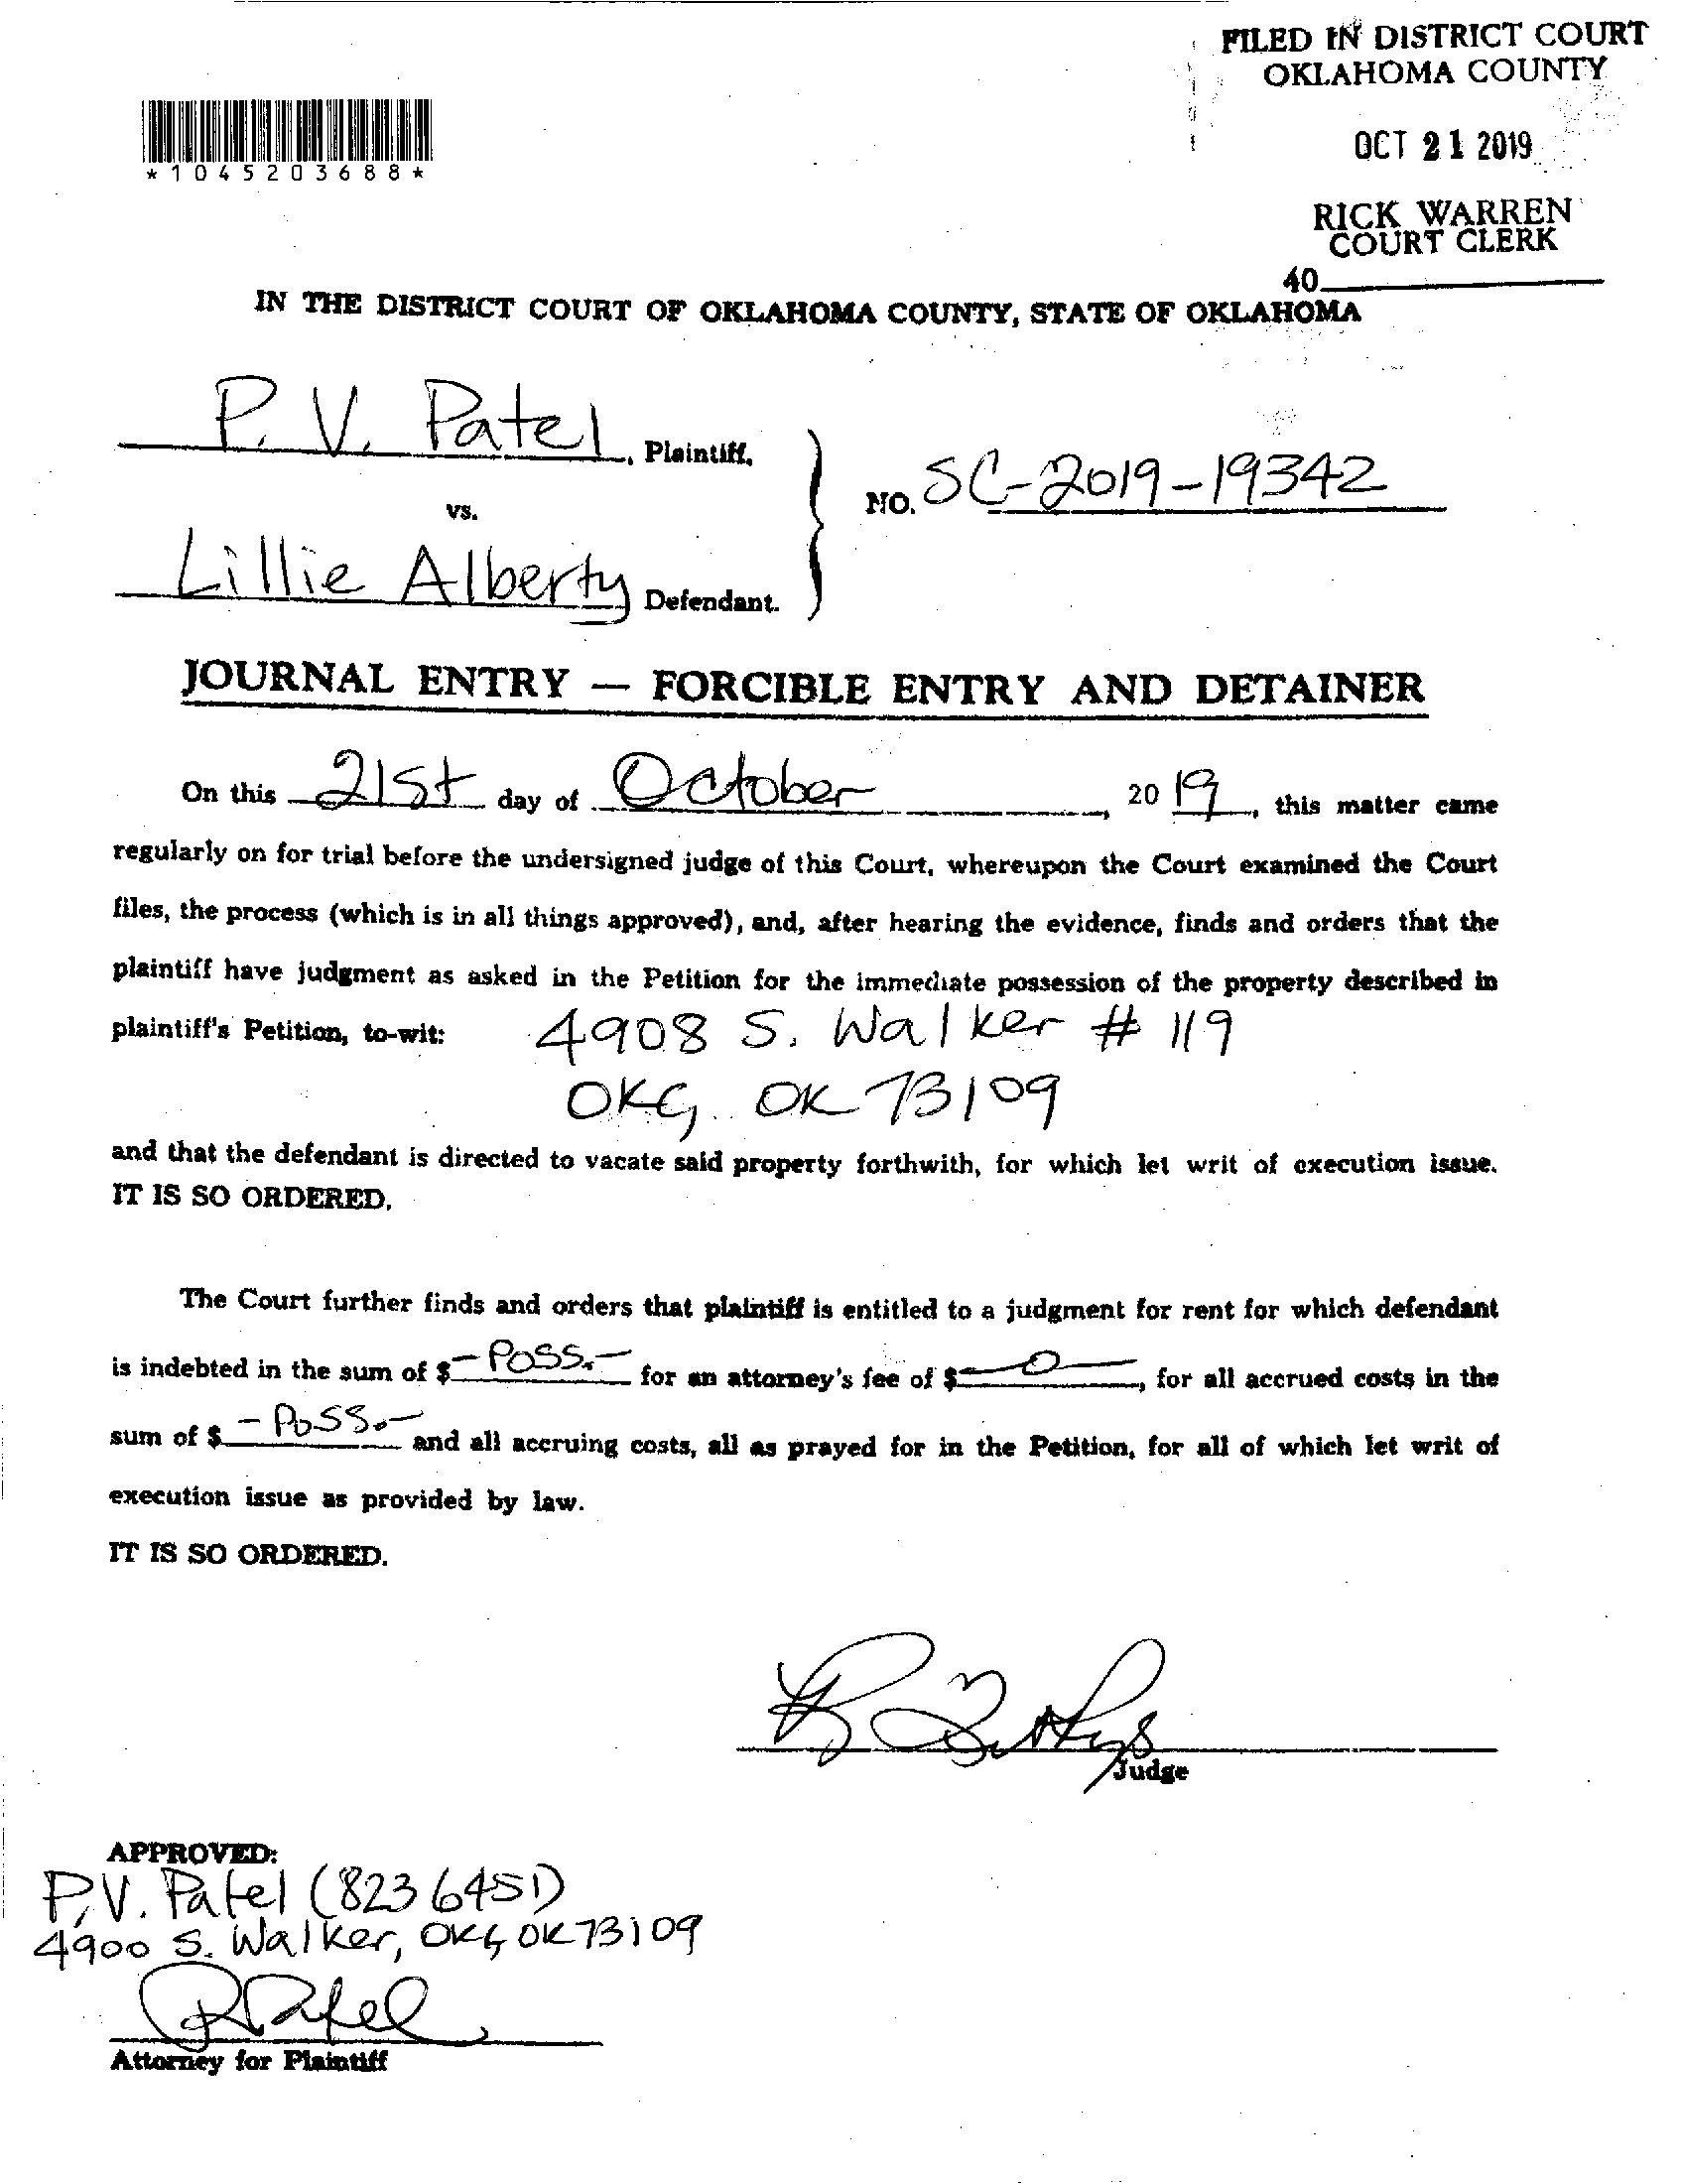 FILED IN DISTRICT COURT
OKLAHOMA COUNTY
OCT 21 2019
RICK WARREN
COURT CLERK
40
*1045203688*
IN THE DISTRICT COURT OF OKLAHOMA COUNTY, STATE OF OKLAHOMA
P. V. Patel, Plaintiff,
vs.
NO. SC-2019-19342
Lillie Alberty Defendant.
JOURNAL ENTRY — FORCIBLE ENTRY AND DETAINER
On this 21st day of October, 20 19, this matter came
regularly on for trial before the undersigned judge of this Court, whereupon the Court examined the Court
files, the process (which is in all things approved), and, after hearing the evidence, finds and orders that the
plaintiff have judgment as asked in the Petition for the immediate possession of the property described in
plaintiff's Petition, to-wit: 4908 S. Walker # 119
OKC, OK 73109
and that the defendant is directed to vacate said property forthwith, for which let writ of execution issue.
IT IS SO ORDERED.
The Court further finds and orders that plaintiff is entitled to a judgment for rent for which defendant
is indebted in the sum of $ -Poss.- for an attorney's fee of $ -0-, for all accrued costs in the
sum of $ -Poss.- and all accruing costs, all as prayed for in the Petition, for all of which let writ of
execution issue as provided by law.
IT IS SO ORDERED.
Judge
APPROVED:
P.V. Patel (823 6451)
4900 S. Walker, OKC, OK 73109
Attorney for Plaintiff